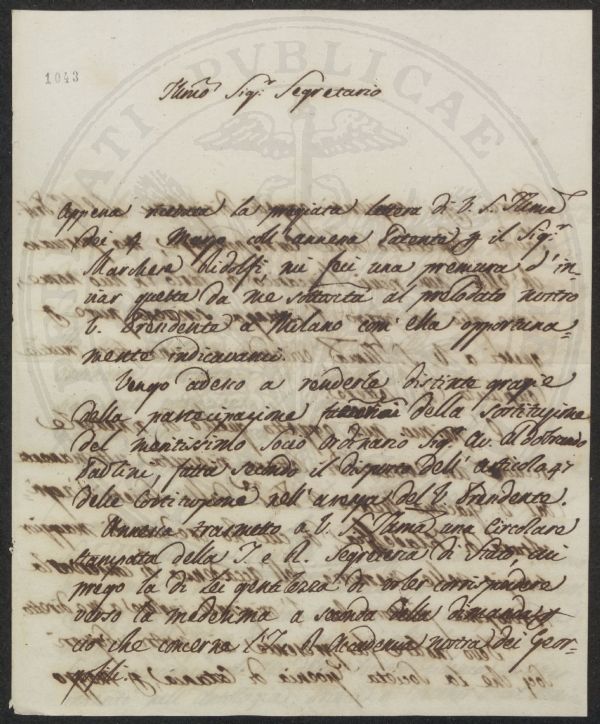 1043
Illmo Sigr Segretario
Appena ricevuta la pregiata lettera di V. S. Illma
dei 4 Marzo coll'annessa Patente p il Sigr
Marchese Ridolfi mi feci una premura d'in-
viar questa da me sottoscritta al prelodato nostro
V. Presidente a Milano com'ella opportuna-
mente indicavami.
Vengo adesso a renderle distinte grazie
della partecipazione della sostituzione
del meritissimo Socio ordinario Sigr Av. Aldobrando
Paolini, fatta secondo il disposto dell'Articolo 47
delle Costituzioni nell'assenza del V. Presidente.
Annessa trasmetto a V. S. Illma una Circolare
stampata della I. e R. Segreteria di Stato, cui
prego la di Lei gentilezza di voler corrispondere
verso la medesima a seconda della dimanda p
ciò che concerne l'I. e R. Accademia nostra dei Geor-
gofili.